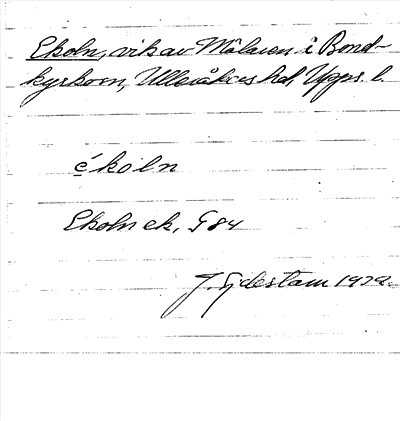 Ekoln, vik av Mälaren i Bond-
kyrkosn, Ulleråkers hd, Upps. l.
ékoln
Ekoln ek, G 84
J. Sjdestam 1972